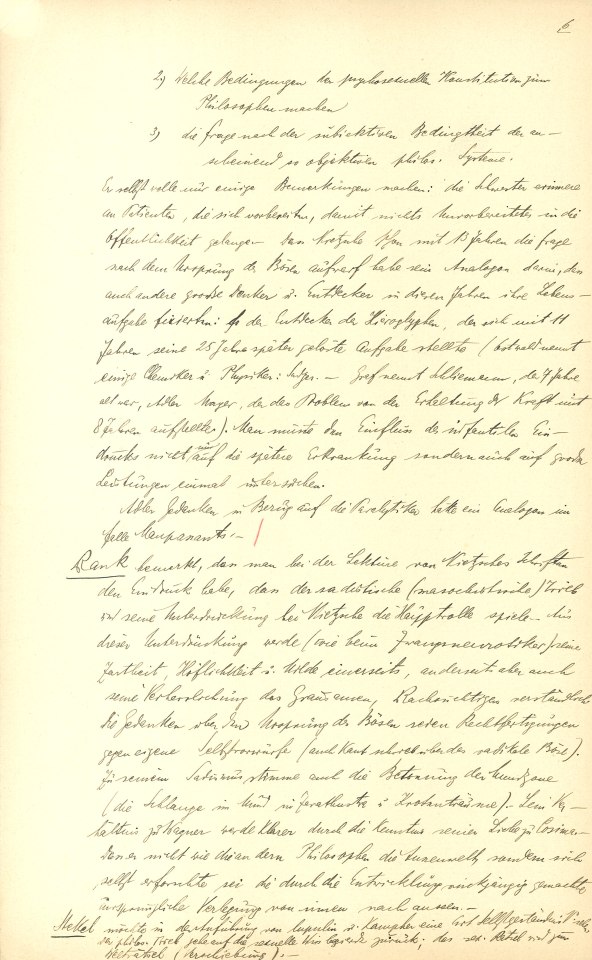 6
2.) Welche Bedingungen der psychosexuellen Konstitution zum
Philosophen machen
3) die Frage nach der subjektiven Bedingtheit der an-
scheinend so objektiven philos. Systeme.
Er selbst wolle nur einige Bemerkungen machen: die Schwester erinnere
an Patienten, die sich vorbereiten, damit nichts Unvorbereitetes in die
Öffentlichkeit gelange. Dass Nietzsche schon mit 13 Jahren die Frage
nach dem Ursprung des Bösen aufwarf habe sein Analogon darin, dass
auch andere grosse Denker u. Entdecker in diesen Jahren ihre Lebens-
aufgabe fixierten: so der Entdecker der Hieroglyphen, der sich mit 11
Jahren seine 25 Jahre später gelöste Aufgabe stellte (Ostwald nennt
einige Chemiker u. Physiker: – Graf nennt Schliemann, der 7 Jahre
alt war, Adler Mayer, der das Problem von der Erhaltung der Kraft mit
8 Jahren aufstellte). Man müsste den Einfluss der infantilen Ein-
drücke nicht nur auf die spätere Erkrankung sondern auch auf grosse
Leistungen einmal untersuchen.
Adlers Gedanken in Bezug auf die Paralytiker hätte ein Analogon im
Falle Maupassants.–
Rank bemerkt, dass man bei der Lektüre von Nietzsches Schriften
den Eindruck habe, dass der sadistische (masochistische) Trieb
und seine Unterdrückung bei Nietzsche die Hauptrolle spiele. Aus
dieser Unterdrückung werde (wie beim Zwangsneurotiker) seine
Zartheit, Höflichkeit u. Milde einerseits, anderseits aber auch
seine Verherrlichung des Grausamen, Rachsüchtigen verständlich.
Die Gedanken über den Ursprung des Bösen seien Rechtfertigungen
gegen eigene Selbstvorwürfe (auch Kant schrieb über das radikale Böse).
Zu seinem Sadismus stimme auch die Betonung der Mundzone
(die Schlange im Mund in Zarathustra u.). Sein Ver-
hältnis zu Wagner werde klarer durch die Kenntnis seiner Liebe zu Cosima.–
Dass er nicht wie die andern Philosophen die Aussenwelt, sondern sich
selbst erforschte sei die durch die Entwicklung rückgängig gemachte
ursprüngliche Verlegung von innen nach aussen.–
Stekel möchte in der Anführung von Lupulin u. Kampher eine Art Selbstgeständnis
der philos. Trieb gehe auf die sexuelle Wissbegierde zurück; das sex. Rätsel wird zum
Welträtsel (Verschiebung).–